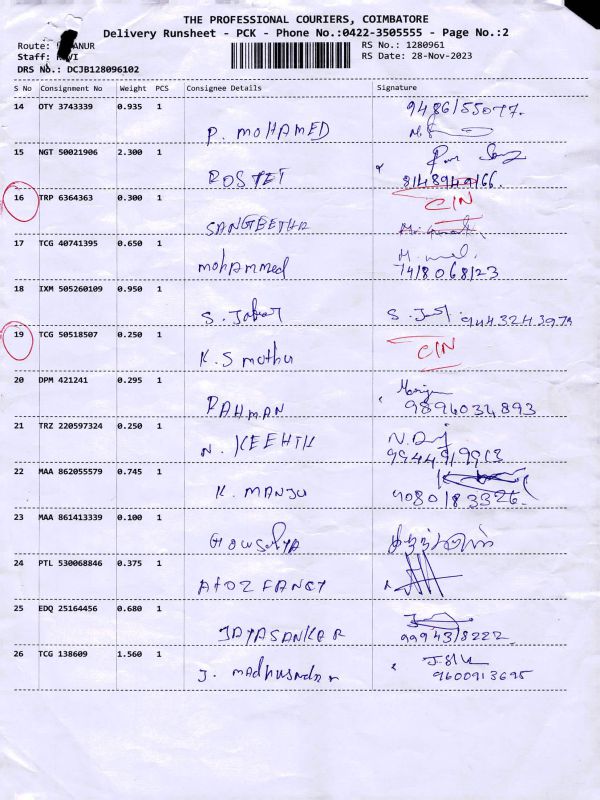 THE PROFESSIONAL COURIERS, COIMBATORE
Delivery Runsheet - PCK - Phone No.:0422-3505555 - Page No.:2
Route: ANUR
RS No.: 1280961
Staff:
RS Date: 28-Nov-2023
DRS No.: DCJB128096102
S No Consignment No Weight PCS Consignee Details Signature
14 OTY 3743339 0.935 1
P. MOHAMED
15 NGT 50021906 2.300 1
8148949166.
16 TRP 6364363 0.300 1 CIN
SANGEETHA
17 TCG 40741395 0.650 1
mohammed
18 IXM 505260109 0.950 1
19 TCG 50518507 0.250 1 CIN
K.S mothu
20 DPM 421241 0.295 1
RAHMAN 9896034893
21 TRZ 220597324 0.250 1
9944919913
22 MAA 862055579 0.745 1
K. MANJU 9080183326.
23 MAA 861413339 0.100 1
GOWSALYA
24 PTL 530068846 0.375 1
ATOZ FANCY
25 EDQ 25164456 0.680 1
JAYASANKER 9994318222.
26 TCG 138609 1.560 1
9600913695